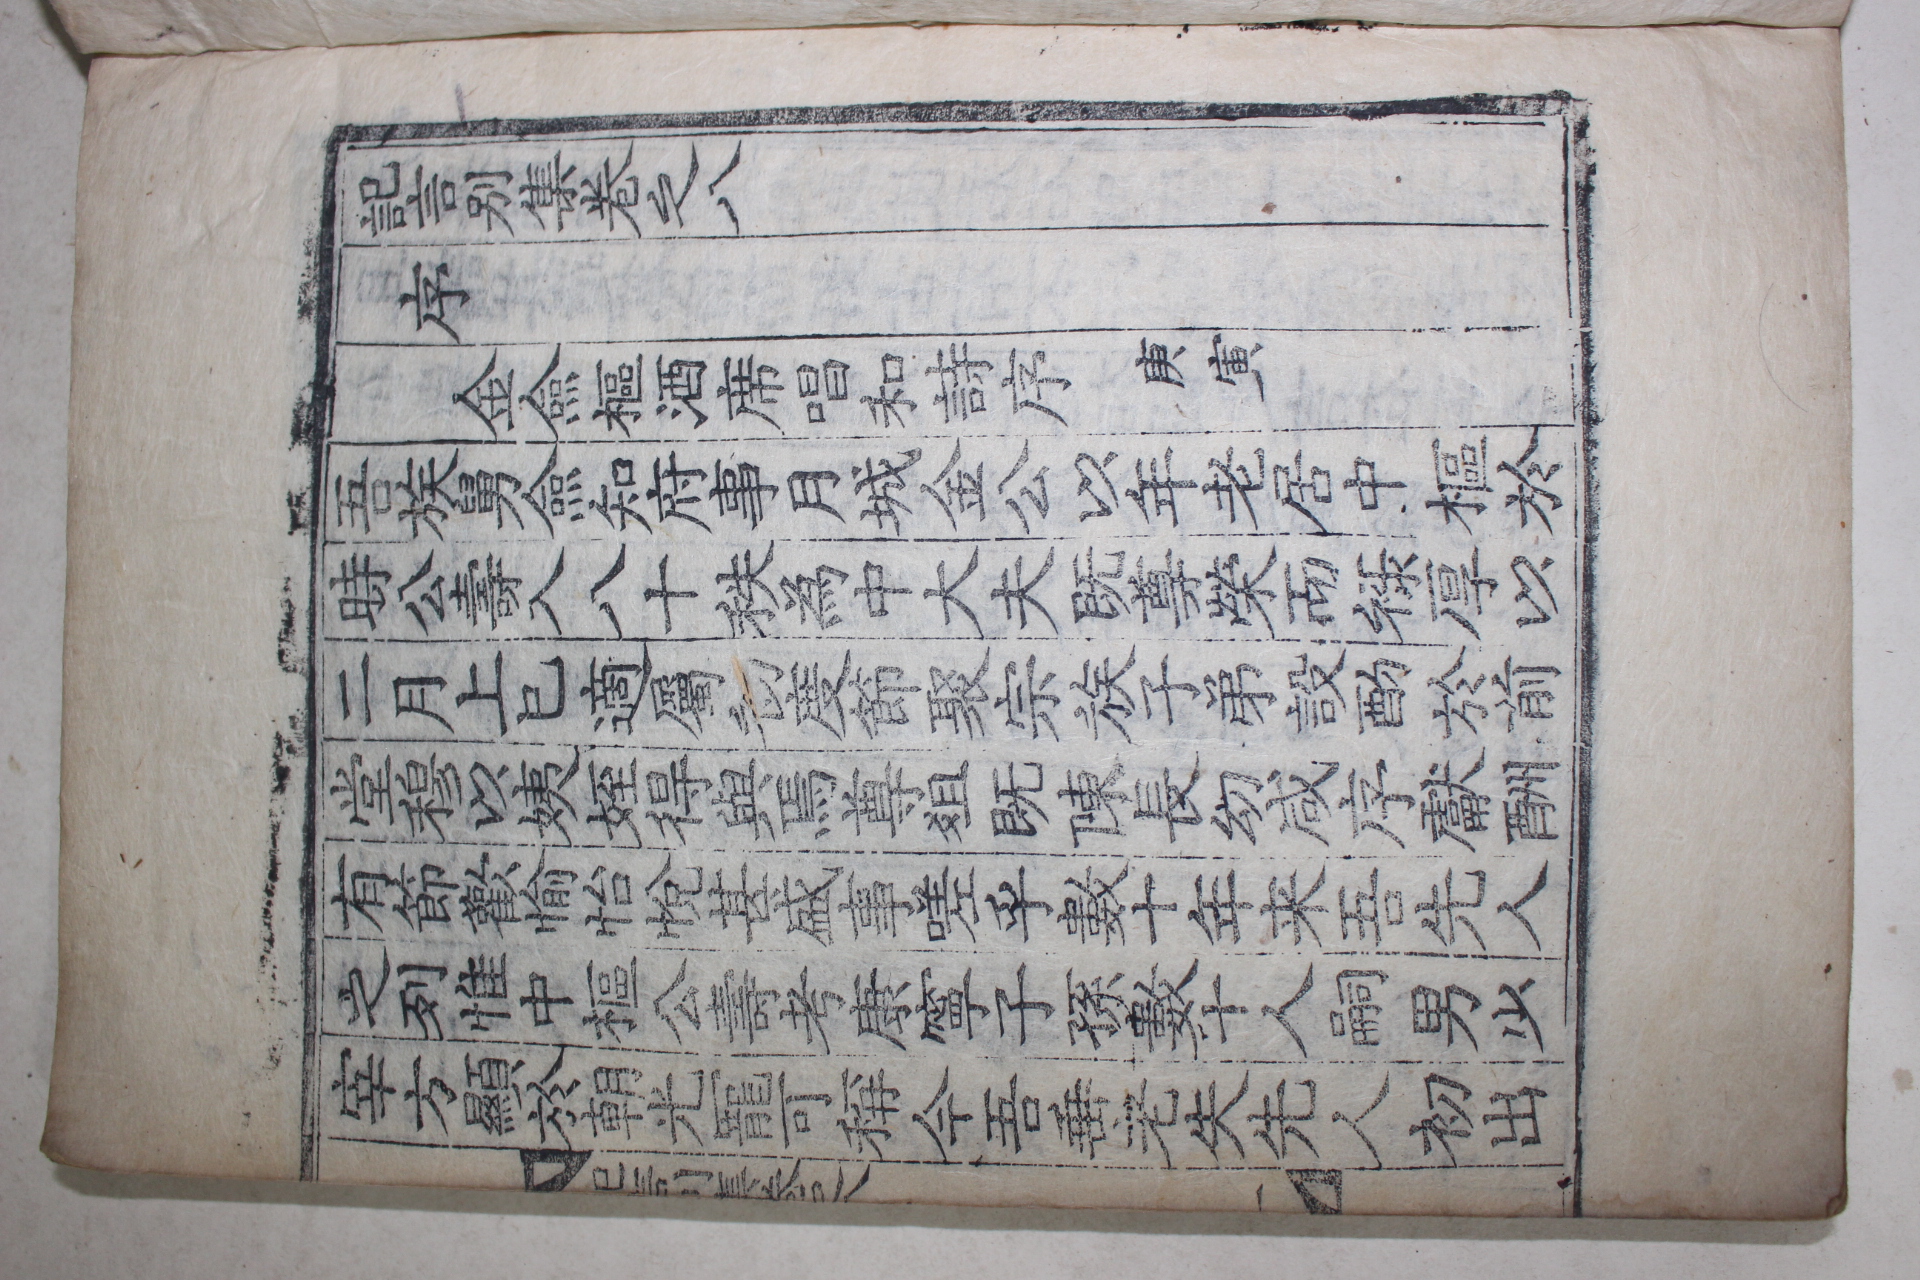 記言別集卷之八
序
金僉樞酒席唱和詩序 庚寅
吾族舅僉知府事月城金公以年老居中樞於
時公壽入八十秩為中大夫既尊榮而祿厚以
二月上巳適屬初度節聚宗族子弟設酌於前
堂穆以姨姪得與焉尊俎既陳長幼咸序獻酬
有節歡愉怡悅甚盛事嗟乎數十年来吾先人
之列惟中樞公壽考康寧子孫數十人嗣男少
宰方顯於朝光寵可稱今吾垂老失先人初出
記言別集卷之八
一